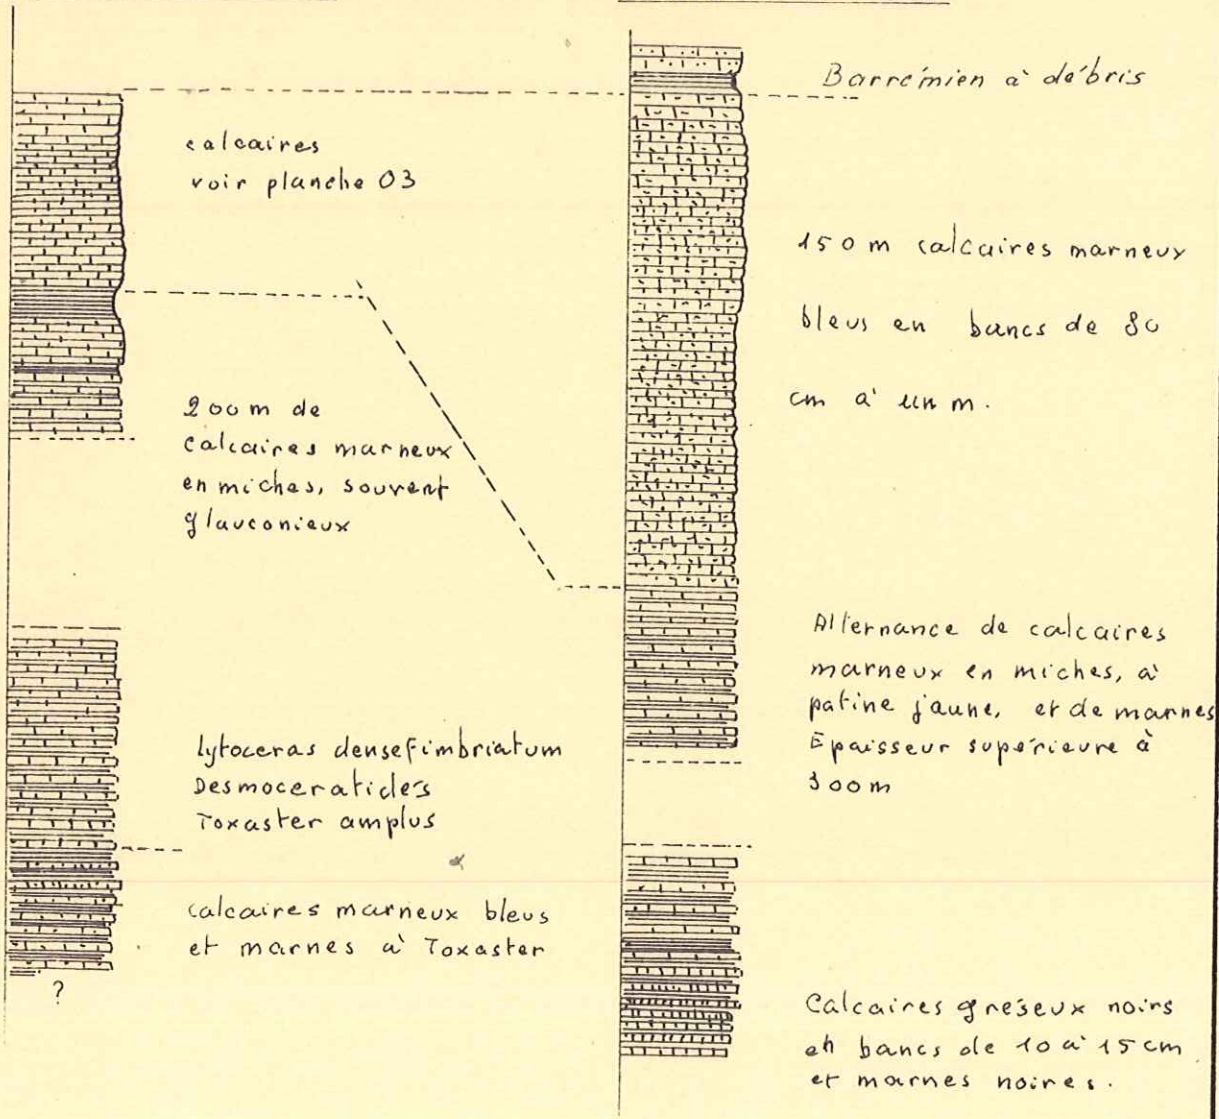 calcaires
voir planche 03
200m de
calcaires marneux
en miches, souvent
glauconieux
lytoceras densefimbriatum
Desmoceratidés
Toxaster amplus
calcaires marneux bleus
et marnes à Toxaster
?
Barrémien à débris
150m calcaires marneux
bleus en bancs de 80
cm à un m.
Alternance de calcaires
marneux en miches, à
patine jaune, et de marnes
Epaisseur supérieure à
300m
Calcaires gréseux noirs
en bancs de 10 à 15 cm
et marnes noires.